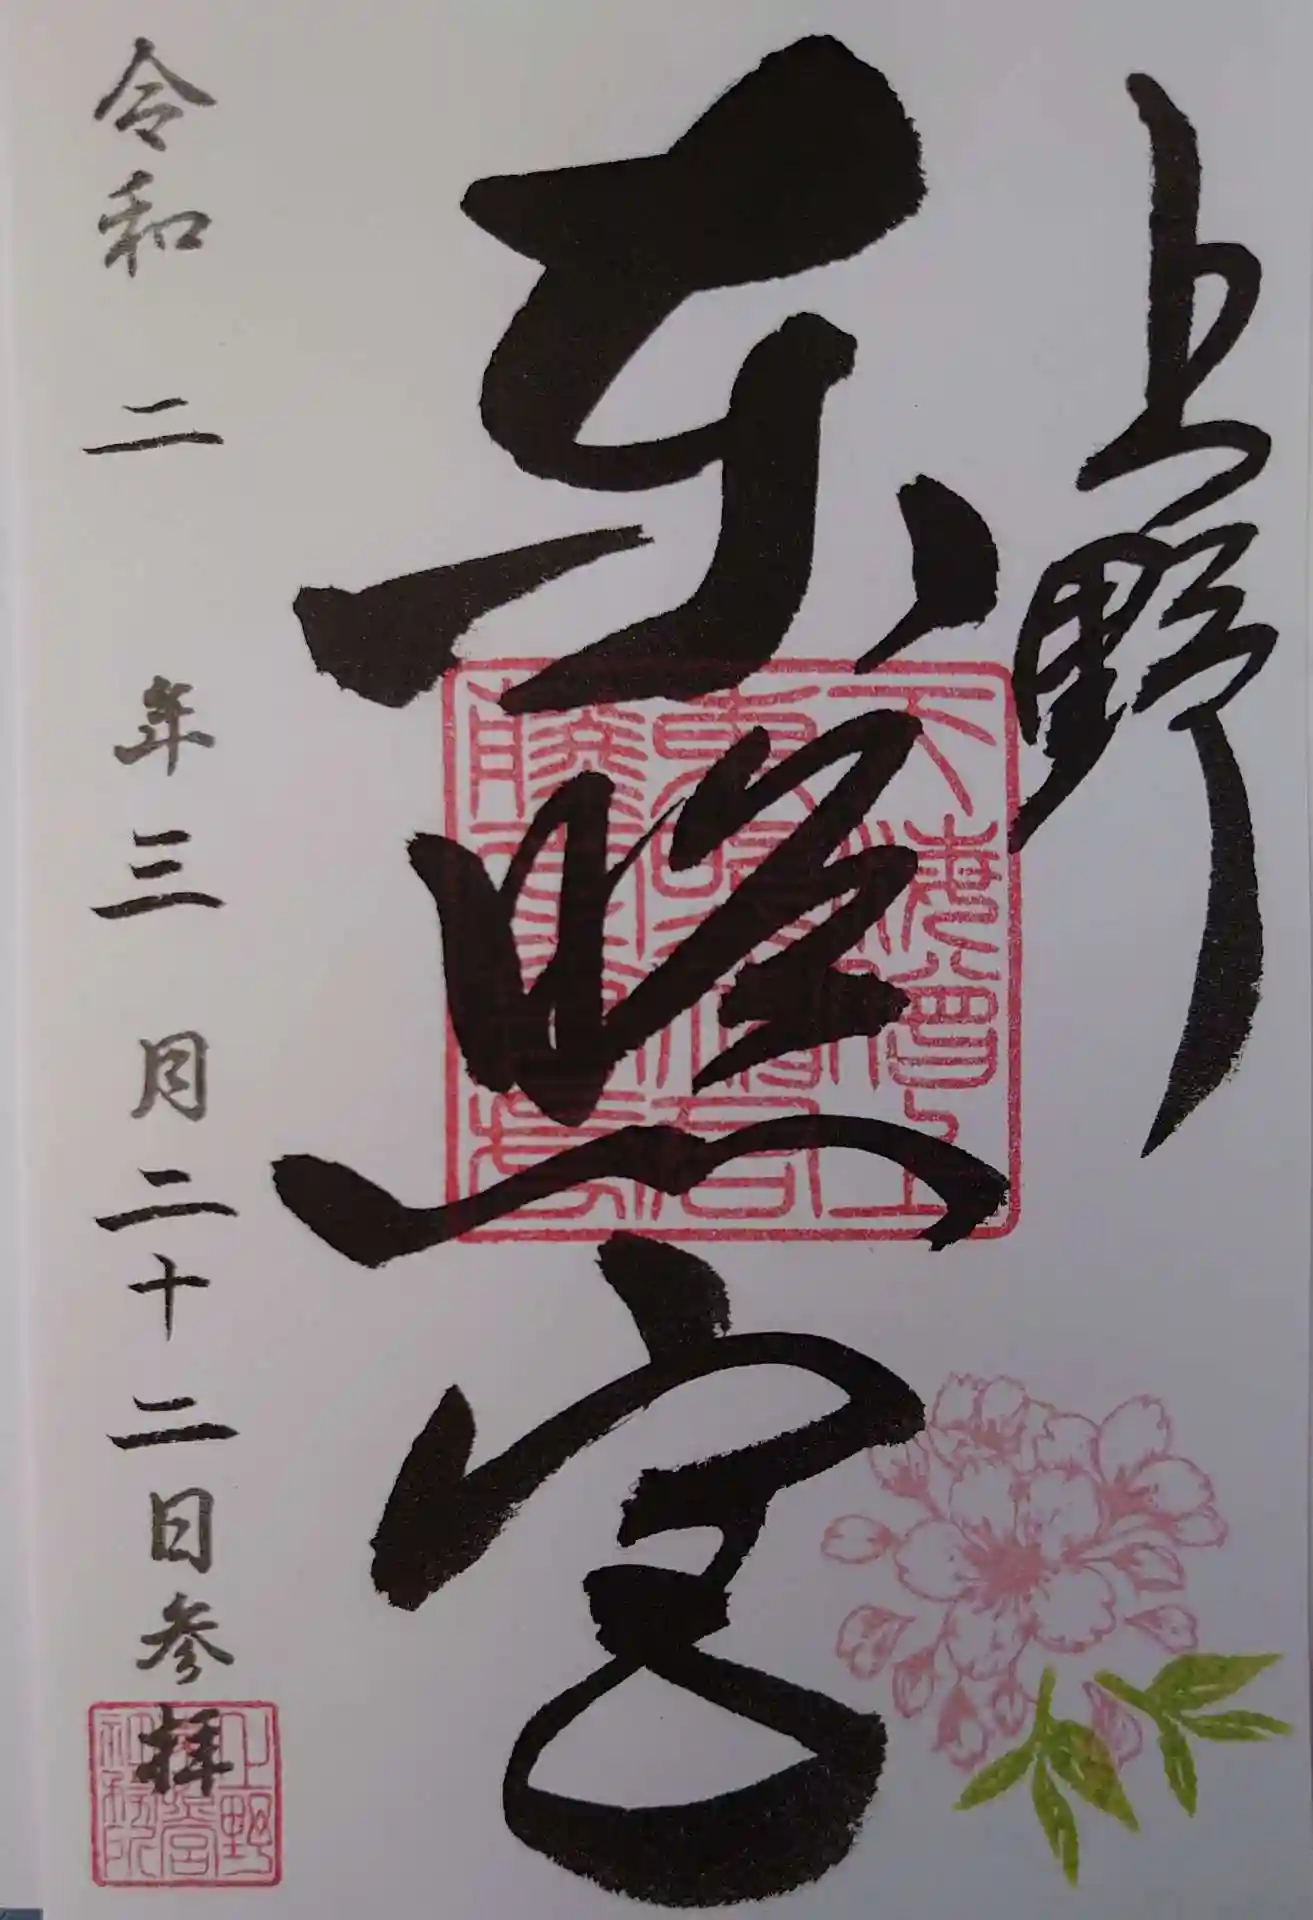 上野
東照宮
令和二年三月二十二日参拝
上野
東照宮
社務所